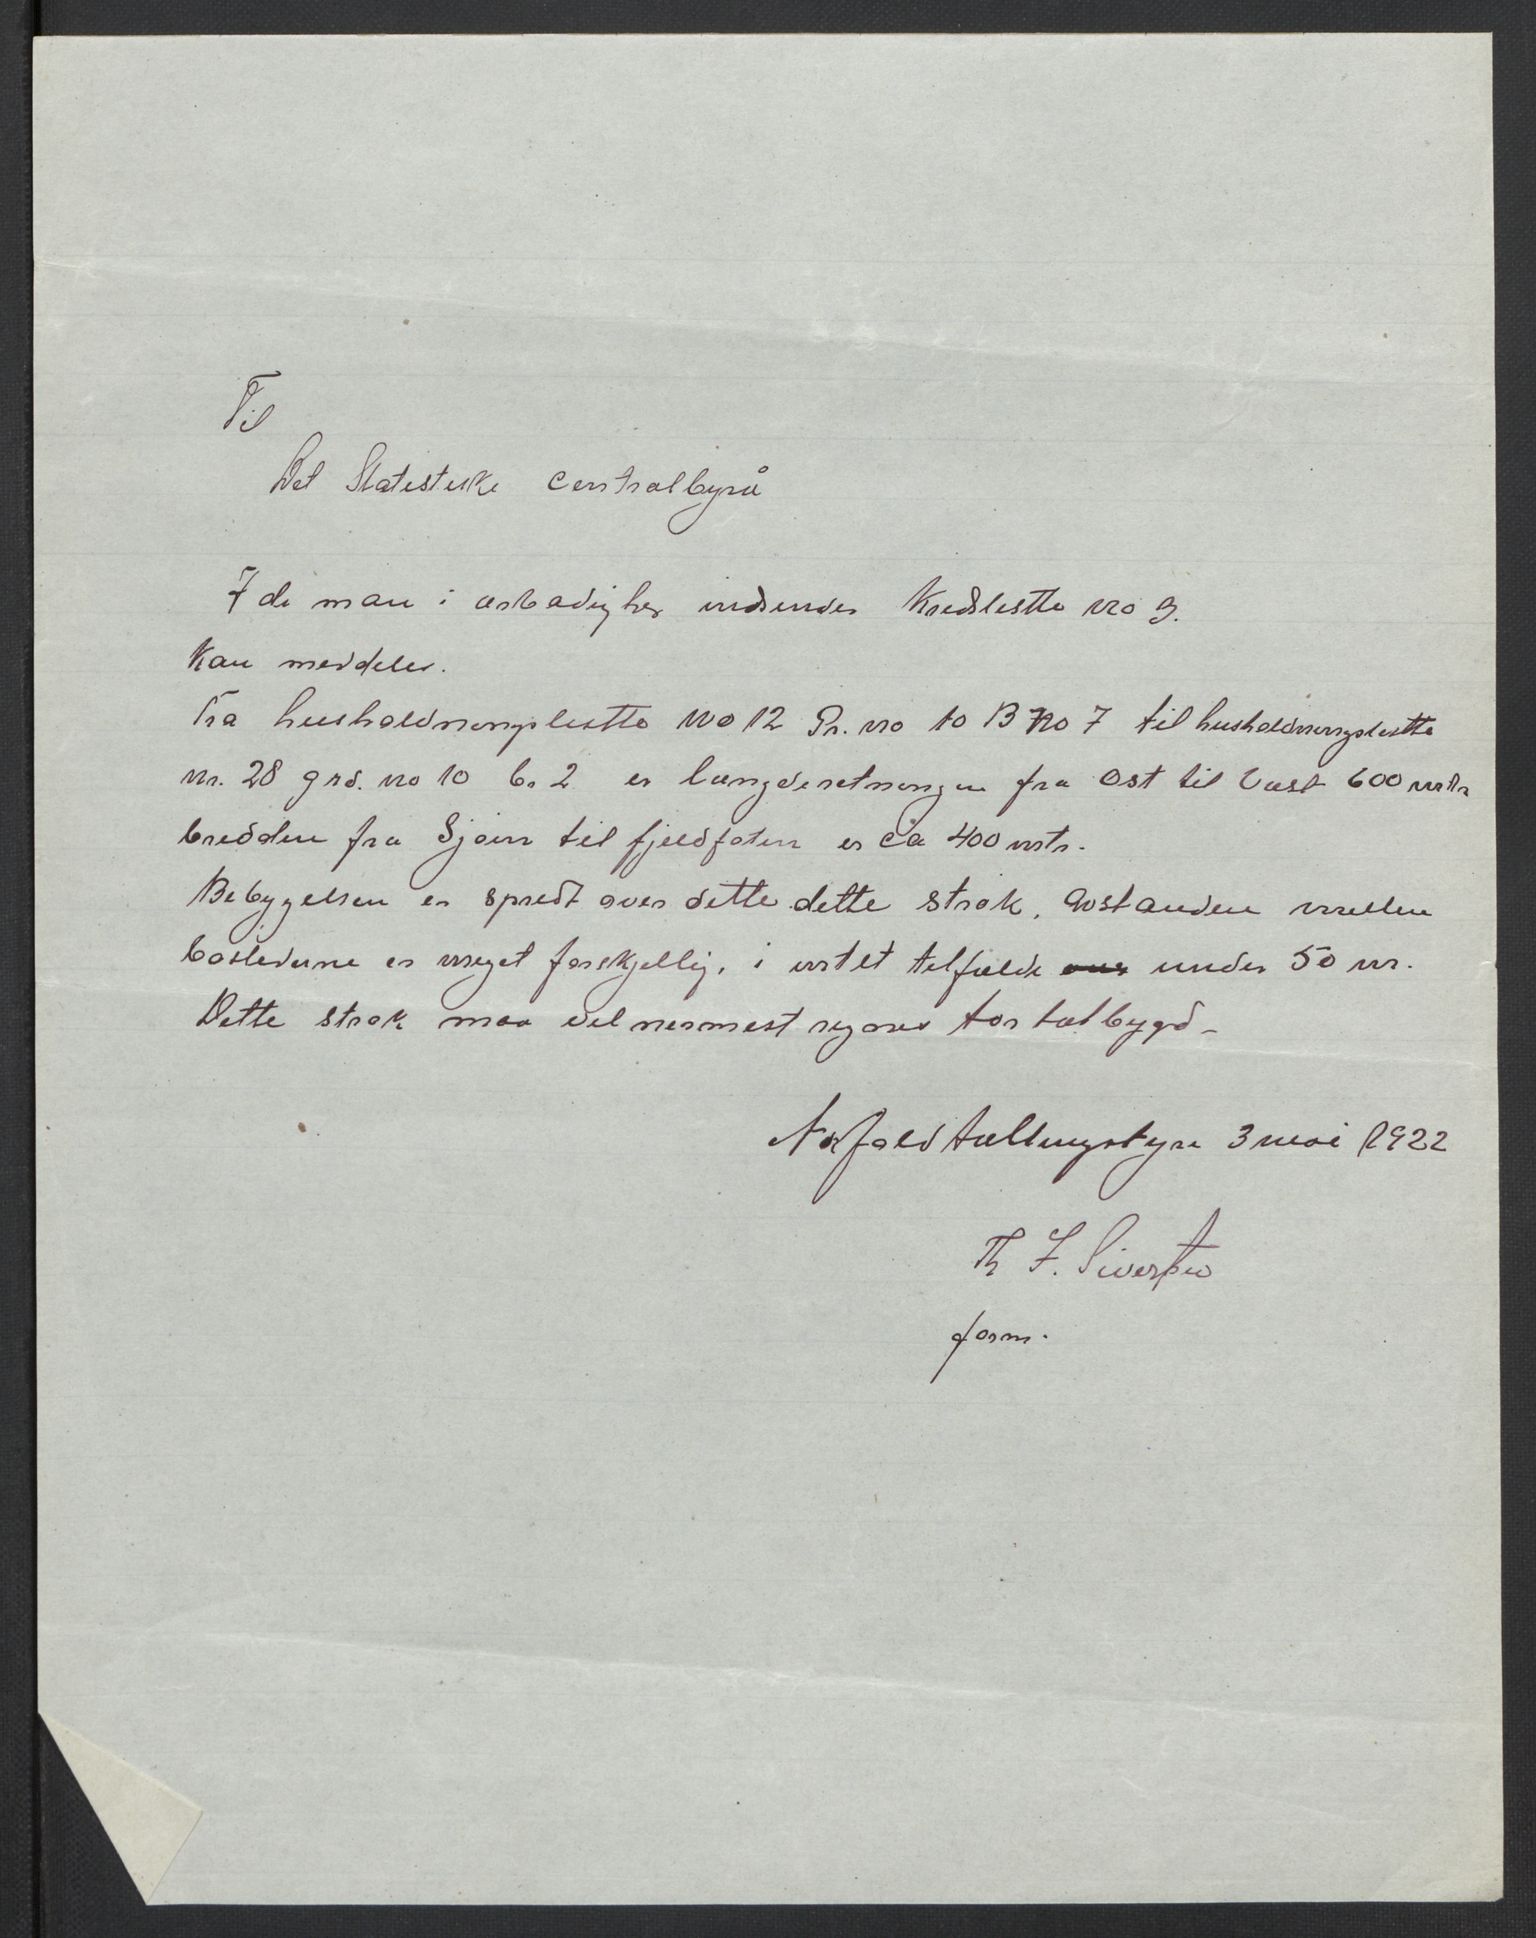 Til
Det Statestiske Centralbyrå
I de man i ærbødighet indsender Kredsliste no 9.
Kan meddeles.
Fra husholdningsliste no 12 Gr. no 10 B no 7 til husholdningsliste
nr. 28 grd. no 10 br 2 er længderetningen fra Øst til Væst 600 mtr
bredden fra Sjøen til fjeldfoten er ca 400 mtr.
Bebyggelsen er spredt over dette dette strøk, Avstanden mellem
bostederne er meget forskjellig, i intet tilfælde under 50 m.
Dette strøk maa vel nermest regnes for tætbygd -
Nordfold tællingstyre 3 mai 1922
Th J. Sivertsen
form.